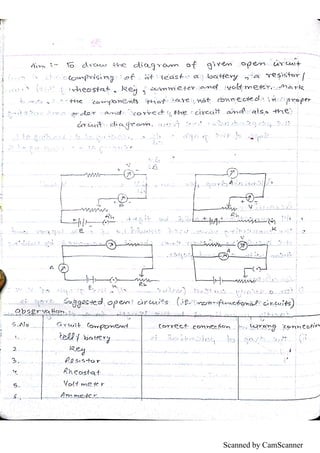 Aim :- To draw the diagram of given open circuit
comprising of at least a battery, a resistor/
rheostat, key, ammeter and voltmeter. Mark
the components that are not connected in proper
order and correct the circuit and also the
circuit diagram.
V
A
Rh
E
K
A
Rh
V
K
A
E
K
Rh
V
A
Suggested open circuits (i.e. non-functional circuits)
Observation
S.No Circuit Component Correct connection Wrong connection
1. cell/battery
2. Key
3. Resistor
4. Rheostat
5. Voltmeter
6. Ammeter
Scanned by CamScanner